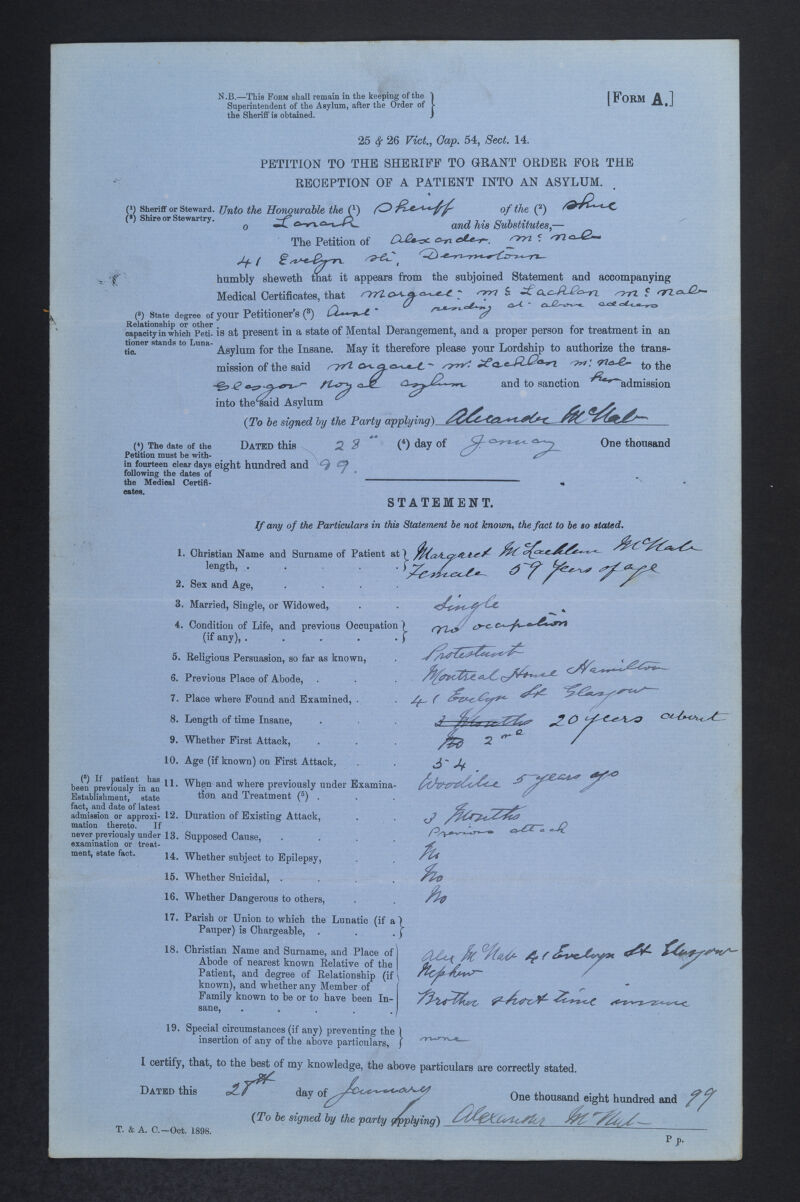 N.B.—This Form shall remain in the keeping of the
Superintendent of the Asylum, after the Order of
the Sheriff is obtained.
[Form A.]
25 & 26 Vict., Cap. 54, Sect. 14.
PETITION TO THE SHERIFF TO GRANT ORDER FOR THE
RECEPTION OF A PATIENT INTO AN ASYLUM.
(1) Sheriff or Steward.
(2) Shire or Stewartry.
Unto the Honourable the (1) Sheriff of the (2) Shire
o Lanark and his Substitutes,—
The Petition of Alexander Mc Nab
41 Evelyn St., Dennistoun
humbly sheweth that it appears from the subjoined Statement and accompanying
Medical Certificates, that Margaret Mc Lachlan Mc Nab
(3) State degree of
Relationship or other
capacity in which Peti-
tioner stands to Luna-
tic.
your Petitioner's (3) Aunt residing at above address
is at present in a state of Mental Derangement, and a proper person for treatment in an
Asylum for the Insane. May it therefore please your Lordship to authorize the trans-
mission of the said Margaret Mc Lachlan Mc Nab to the
Glasgow Royal Asylum and to sanction her admission
into the said Asylum
(To be signed by the Party applying) Alexander McNab
(4) The date of the
Petition must be with-
in fourteen clear days
following the dates of
the Medical Certifi-
cates.
Dated this 28th (4) day of January One thousand
eight hundred and 99.
STATEMENT.
If any of the Particulars in this Statement be not known, the fact to be so stated.
1. Christian Name and Surname of Patient at
length, . Margaret McLachlan McNab
2. Sex and Age, Female 59 Years of age
3. Married, Single, or Widowed, Single
4. Condition of Life, and previous Occupation
(if any), . no occupation
5. Religious Persuasion, so far as known, Protestant
6. Previous Place of Abode, Montreal House Hamilton
7. Place where Found and Examined, . 41 Evelyn St Glasgow
8. Length of time Insane, 3 Months 20 years about
9. Whether First Attack, No 2nd
10. Age (if known) on First Attack, 54
(5) If patient has
been previously in an
Establishment, state
fact, and date of latest
admission or approxi-
mation thereto. If
never previously under
examination or treat-
ment, state fact.
11. When and where previously under Examina-
tion and Treatment (5) . Woodilee 5 years ago
12. Duration of Existing Attack, 3 Months
13. Supposed Cause, Previous attack
14. Whether subject to Epilepsy, No
15. Whether Suicidal, . No
16. Whether Dangerous to others, No
17. Parish or Union to which the Lunatic (if a
Pauper) is Chargeable, .
18. Christian Name and Surname, and Place of
Abode of nearest known Relative of the
Patient, and degree of Relationship (if
known), and whether any Member of
Family known to be or to have been In-
sane, .
Alex McNab 41 Evelyn St Glasgow
Nephew
Brother short time insane
19. Special circumstances (if any) preventing the
insertion of any of the above particulars, none
I certify, that, to the best of my knowledge, the above particulars are correctly stated.
Dated this 28th day of January One thousand eight hundred and 99
(To be signed by the party applying) Alexander McNab
T. & A. C.—Oct. 1898.
P p.